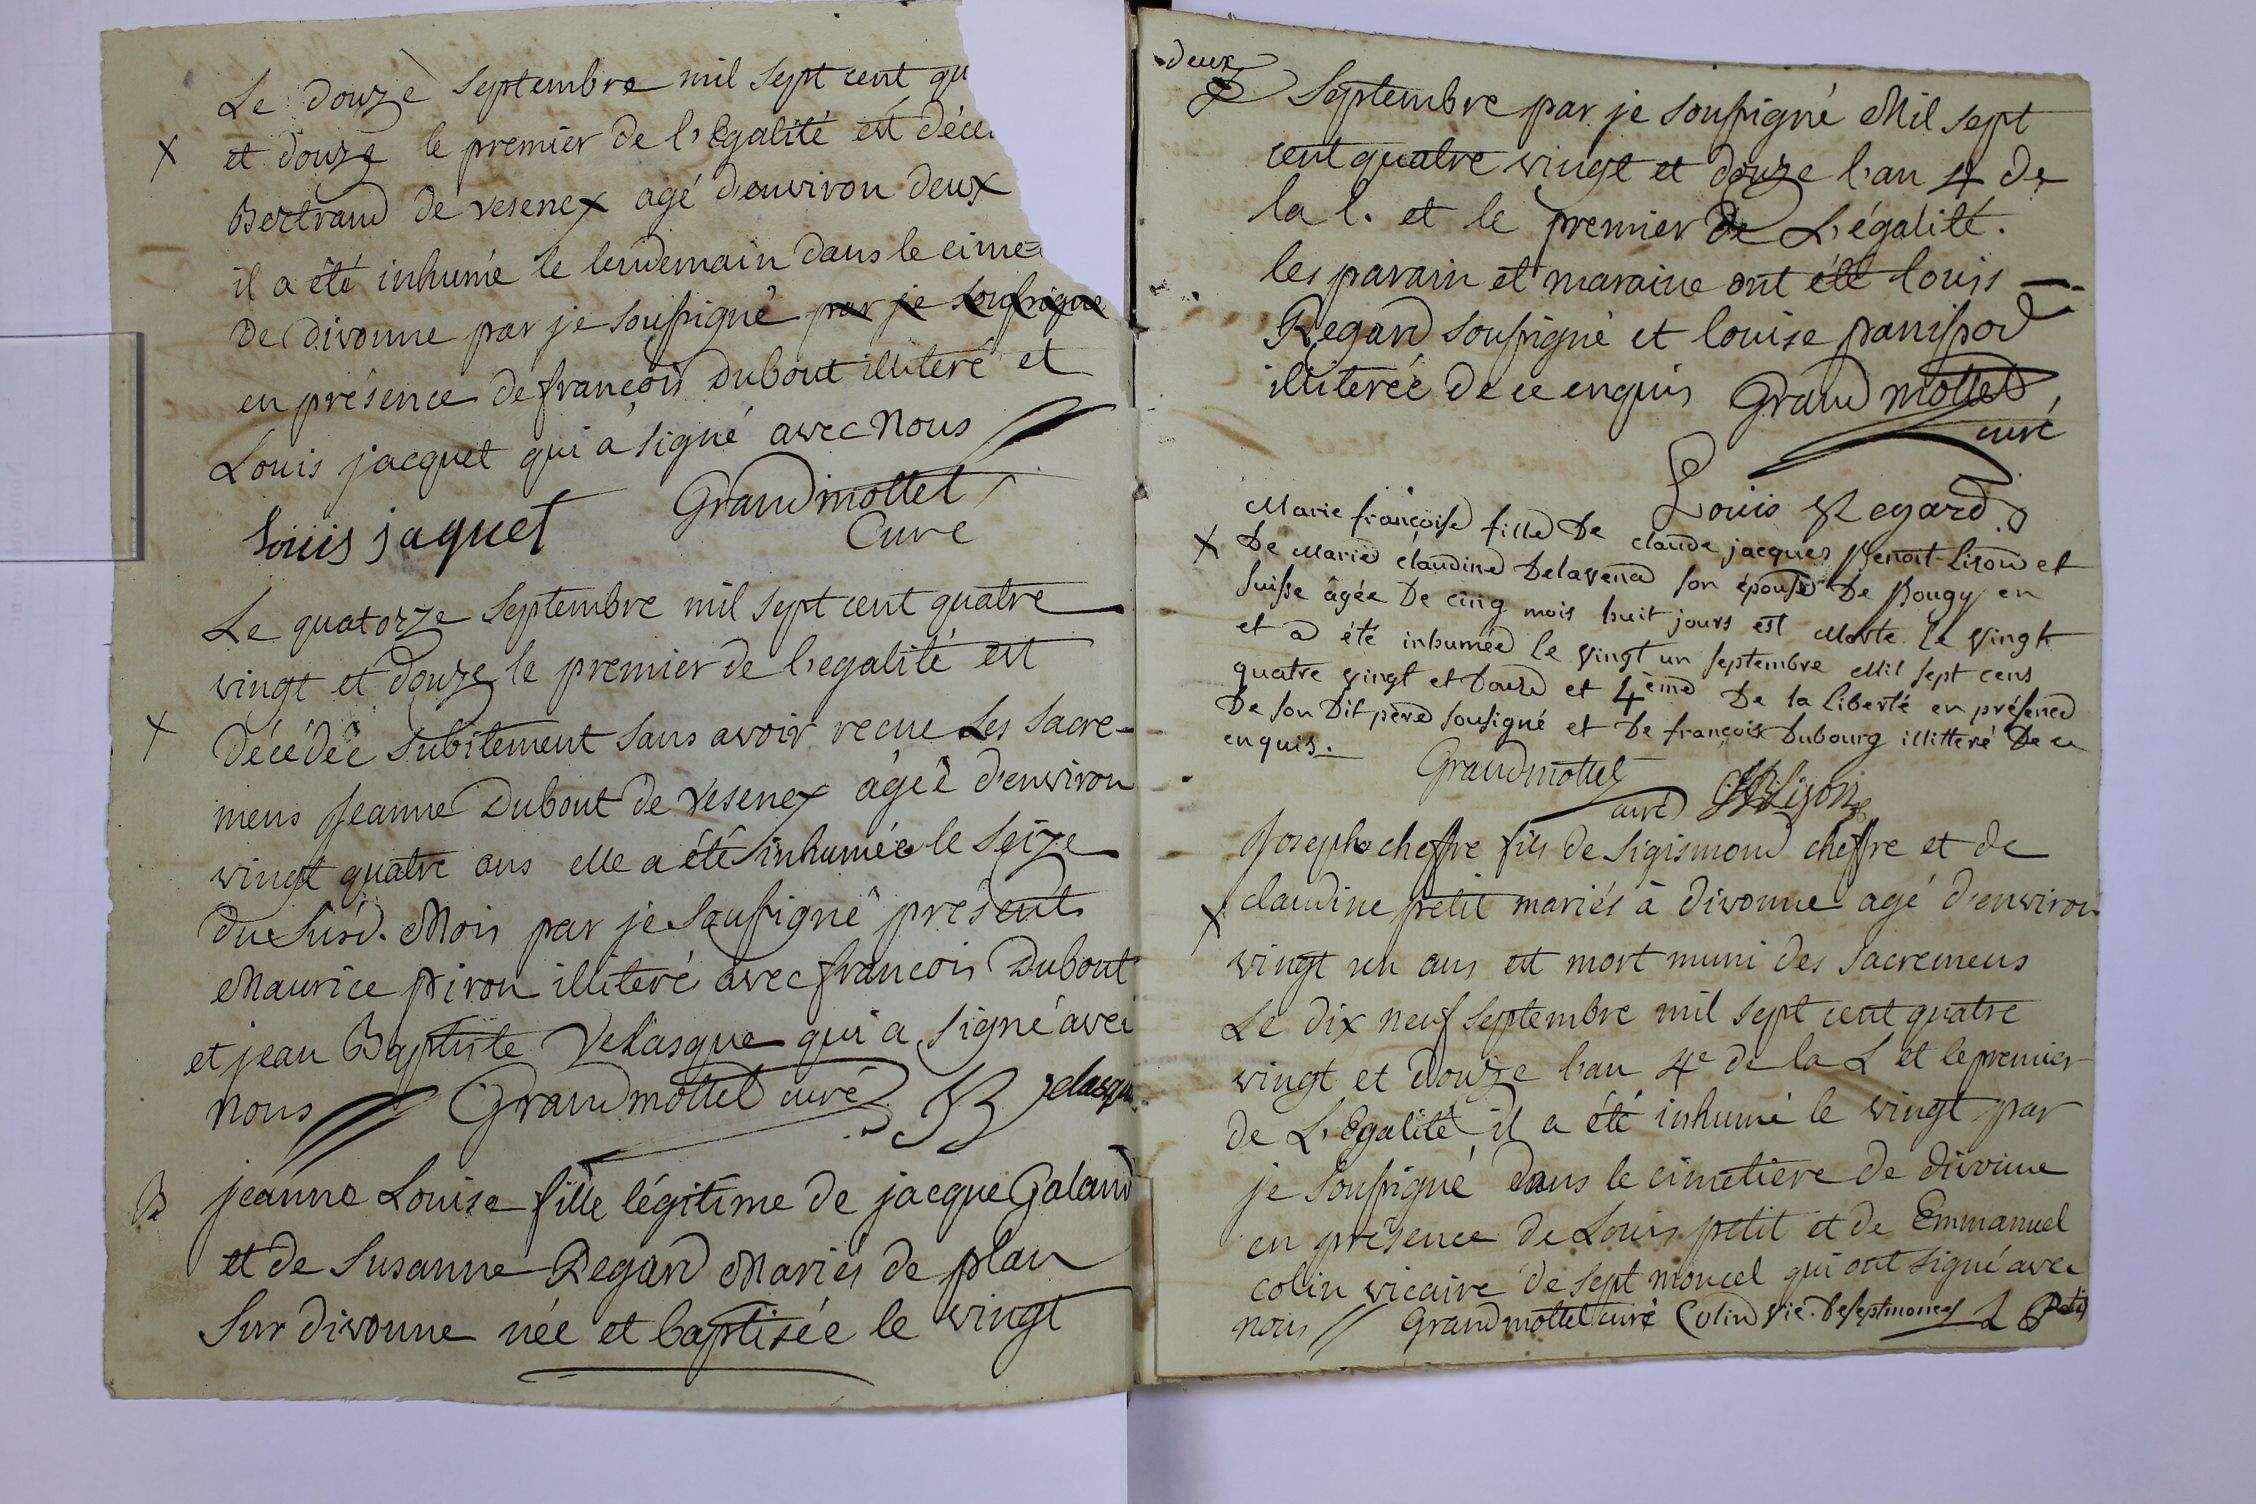 Le douze septembre mil sept cent qu
X et douze le premier de l'Egalité est déce
Bertrand de vesenex agé d'environ deux
il a été inhumé le lendemain dans le cime=
de divonne par je soussigné par je soussigne
en présence de françois Dubout illiteré et
Louis jacquet qui a signé avec Nous
Louis jaquet Grandmottet
Curé
Le quatorze septembre mil sept cent quatre
vingt et douze le premier de l'egalité est
X décédée subitement sans avoir recue les sacre-
mens Jeanne Dubout de vesenex agée d'environ
vingt quatre ans elle a été inhumée le seize
du susd. Mois par je soussigné présents
Maurice piron illiteré avec françois Dubout
et jean Baptiste Velasque qui a signé avec
nous Grandmottet curé JB velasque
B jeanne Louise fille légitime de jacque Galand
et de Susanne Regard Mariés de plan
sur divonne née et baptisée le vingt
deux
septembre par je soussigné Mil sept
cent quatre vingt et douze l'an 4 de
la l. et le premier de L'égalité.
les parain et maraine ont été louis
Regard soussigné et louise panissod
illiterée de ce enquis Grandmottet
curé
Louis Regard
Marie françoise fille De claude jacques Benoit-Lison et
X De Marie claudine Delavena son épouse De Bougy en
suisse âgée De cinq mois huit jours est Morte Le vingt
et a été inhumée le vingt un septembre Mil sept cens
quatre vingt et Douze et 4ème De la Liberté en présence
De son Dit père sousigné et De françois Dubourg illitteré De ce
enquis. Grandmottet
curé Lison
Joseph cheffre fils de Sigismond cheffre et de
X claudine petit mariés à divonne agé d'environ
vingt un ans est mort muni des sacremens
Le dix neuf septembre mil sept cent quatre
vingt et douze l'an 4e de la L et le premier
de L'Egalité il a été inhumé le vingt par
je soussigné dans le cimetiere de divonne
en présence de Louis petit et de Emmanuel
colin vicaire de sept moncel qui ont signé avec
nous Grandmottet curé Colin vic. de septmoncel L Petit